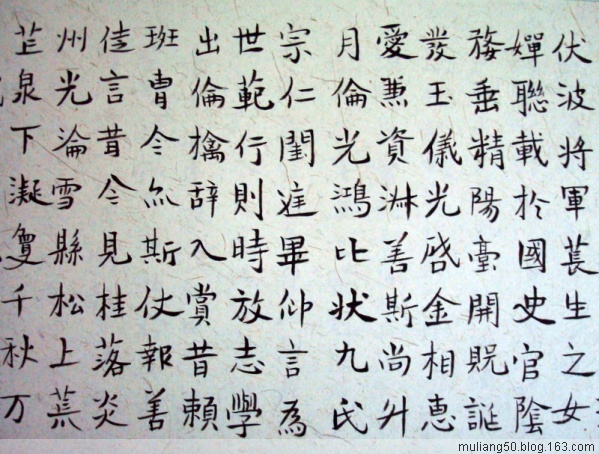 伏波将軍萇生之女
嬋聯載於國史官陰
婺垂精陽臺開貺誕
發玉儀光啓金相惠
愛兼資淑善斯尚升
月倫光鴻比状九氏
宗仁閨庭畢仰言為
世範行則時放志學
出倫擒辞入賞昔賴
班曹令尒斯仗報善
佳言昔今見桂落炎
州光淪雪縣松上
泉下凝夐千秋万
muliang50.blog.163.com